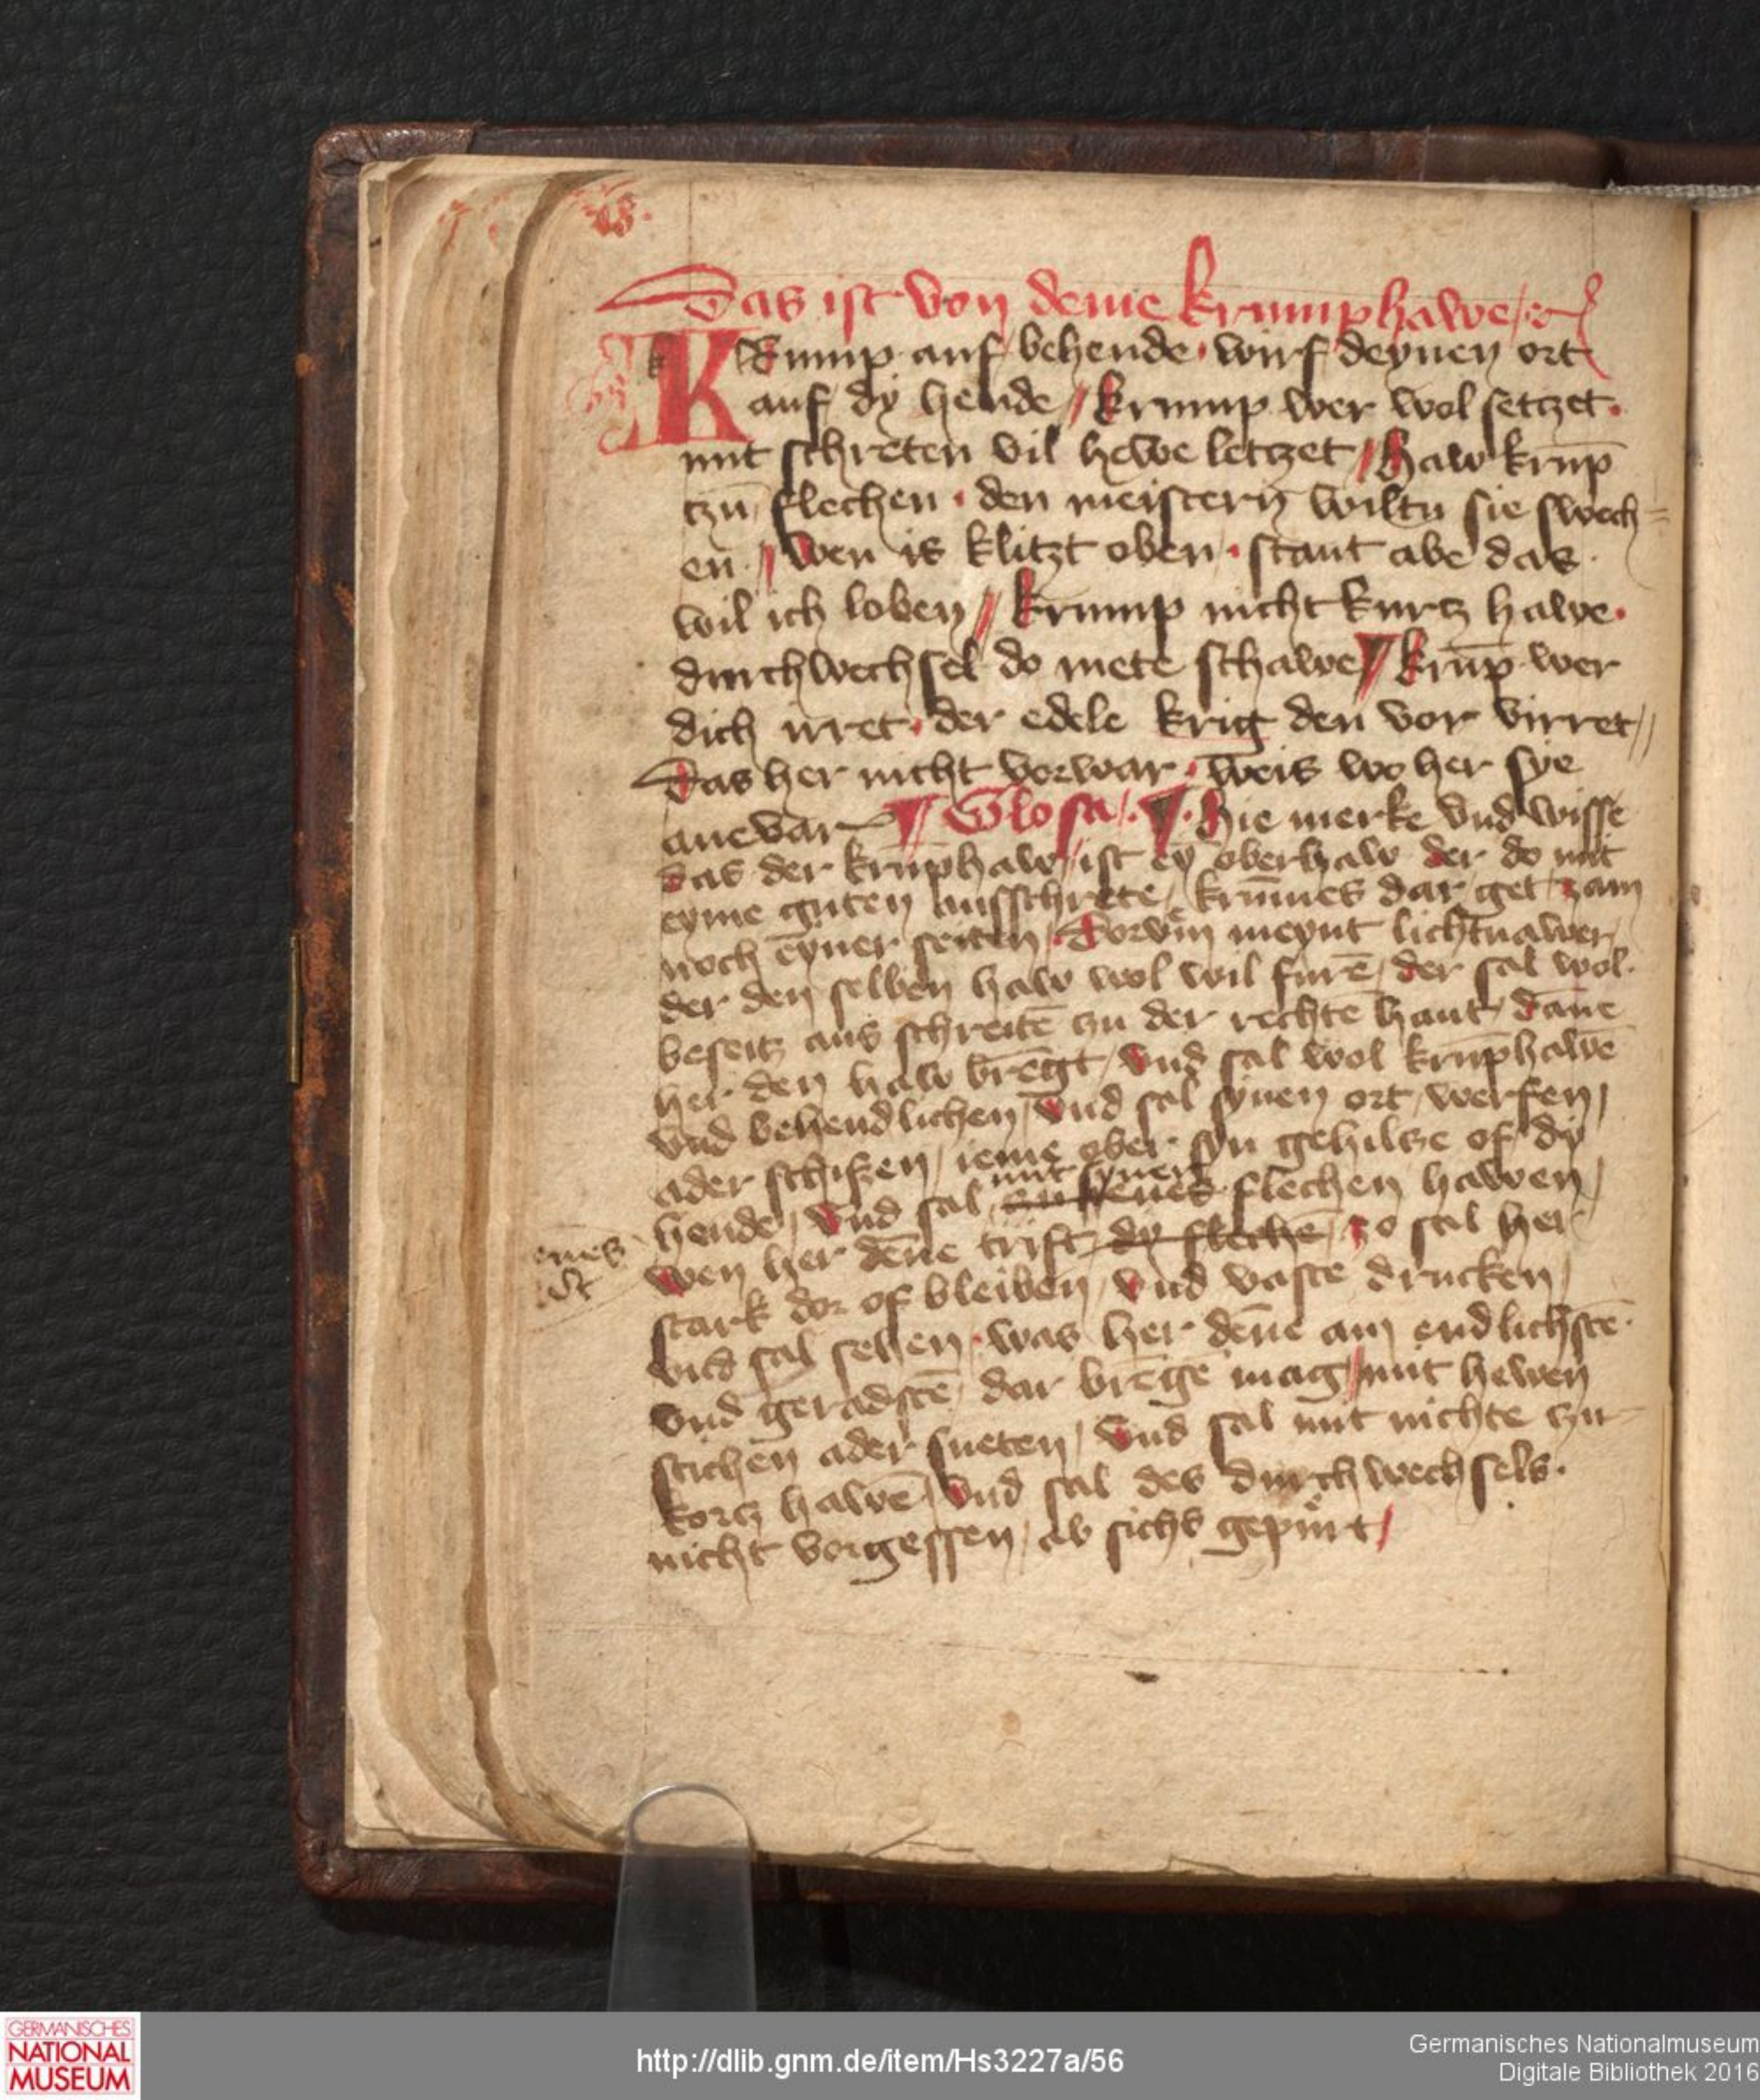 Das ist von deme Krumphawe /
KRump auf behende · wirf deynen ort
auf dy hende // Krump wer wol setczet ·
mit schreten vil hewe letczet // Haw krūp
czū flechen · den meistern wiltu sie swech=
en · // Wen is klitzt oben · stant abe das ·
wil ich loben // Krump nicht kurcz hawe ·
durchwechsel do mete schawe // Krūp wer
dich irret · der edele krig den vor virret //
Das her nicht vorwar · weis wo her sye
ane var // Glosa / · Hie merke vnd wisse
das der krūphaw / ist eȳ oberhaw der do mit
eyme guten ausschrete / krūmes dar get / zam
noch eyner seiten / Dorvm̄ meynt lichtnawer /
der den selben haw wol wil furē / der sal wol ·
beseitz aus schreitē zu der rechtē hant / dāne
her den haw brēgt / vnd sal wol krūphawē
vnd behendlichen / vnd sal synen ort / werfen /
ader schißen / ieme ober syn gehilcze of dy
mit syner
hende / vnd sal flechen hawen /
wen her dēne trift / dy flechē / zo sal her
stark dor of bleiben / vnd vaste drucken /
vnd sal sehen · was her dēne am endlichstē ·
vnd geradstē / dar brēgē mag / mit hewen
stichen ader sneten / vnd sal mit nichte czu
korcz hawē / vnd sal des durchwechsels ·
nicht vorgessen / ab sichs gepürt /
http://dlib.gnm.de/item/Hs3227a/56
GERMANISCHES
NATIONAL
MUSEUM
Germanisches Nationalmuseum
Digitale Bibliothek 2016